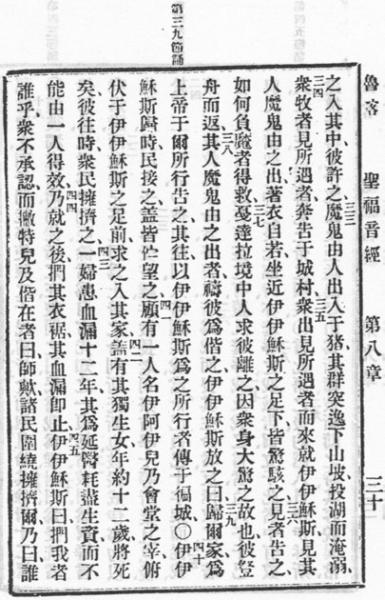 第三九節誦
魯客 聖福音經 第八章 三十
之入其中、彼許之、三三魔鬼由人出入于猪、其群突逸下山坡、投湖而淹溺、
三四衆牧者見所遇者、奔告于城村、三五衆出見所遇者而來就伊伊穌斯、見其
人魔鬼由之出、著衣自若、坐近伊伊穌斯之足下、皆驚駭、三六之見者告之、
如何負魔者得救、三七戞達拉境中人求彼離之、因衆身大驚之故也、彼登
舟而返、三八其人魔鬼由之出者禱彼爲偕之、伊伊穌斯放之曰、三九歸爾家、爲
上帝于爾所行告之、其往以伊伊穌斯爲之所行者傳于徧城、〇四十伊伊
穌斯歸時民接之、蓋皆佇望之、四一顧有一人名伊阿伊兒、乃會堂之宰、俯
伏于伊伊穌斯之足前、求之入其家、四二蓋有其獨生女、年約十二歲、將死
矣、彼往時衆民擁擠之、四三一婦患血漏十二年、其爲延醫耗盡生資、而不
能由一人得效、四四乃就之後捫其衣裾、其血漏卽止、四五伊伊穌斯曰、捫我者
誰乎、衆不承認、而撇特兒及偕在者曰、師歟、諸民圍繞擁擠爾、乃曰誰